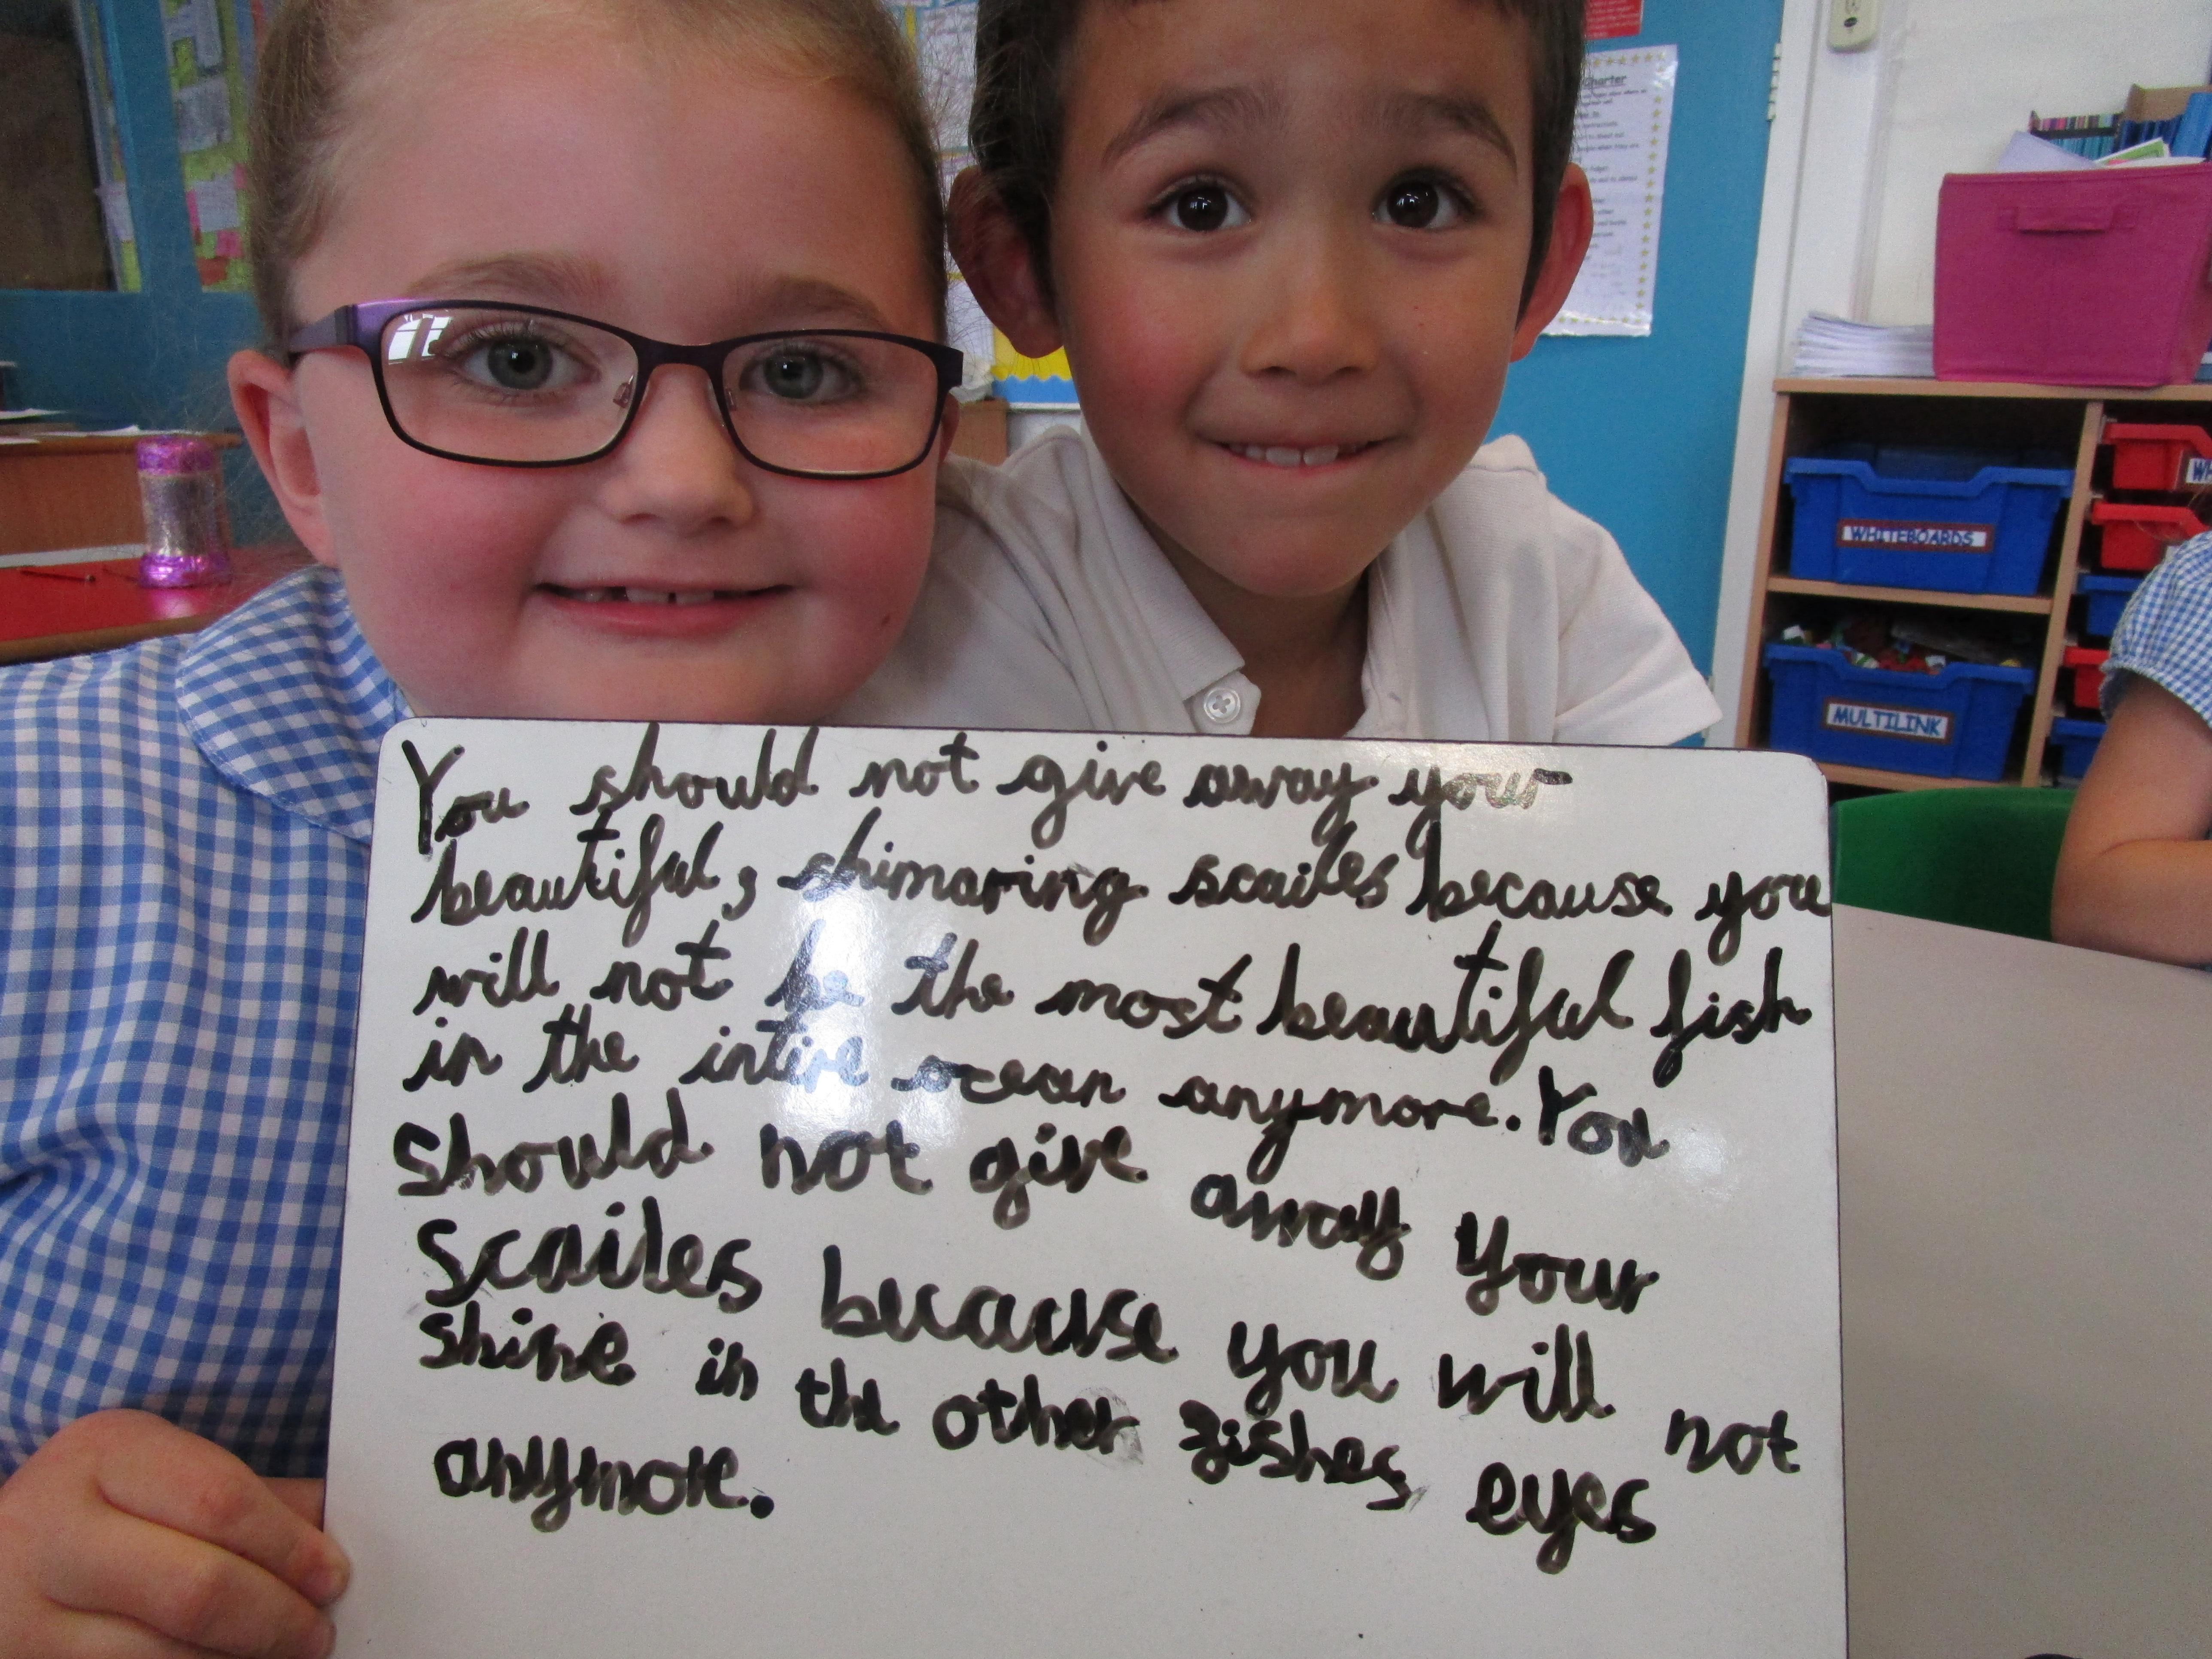 Charter
WHITEBOARDS
MULTILINK
You should not give away your
beautiful, shimaring scailes because you
will not be the most beautiful fish
in the intire ocean anymore. You
should not give away your
scailes because you will not
shine in the other fishes eyes
anymore.